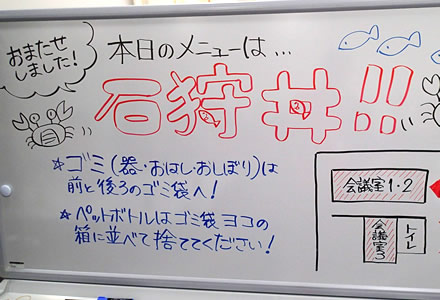 おまたせ
しました!
本日のメニューは...
石狩丼!!
☆ゴミ(器・おはし・おしぼり)は
前と後ろのゴミ袋へ!
☆ペットボトルはゴミ袋ヨコの
箱に並べて捨ててください!
会議室1・2
会議室3
トイレ